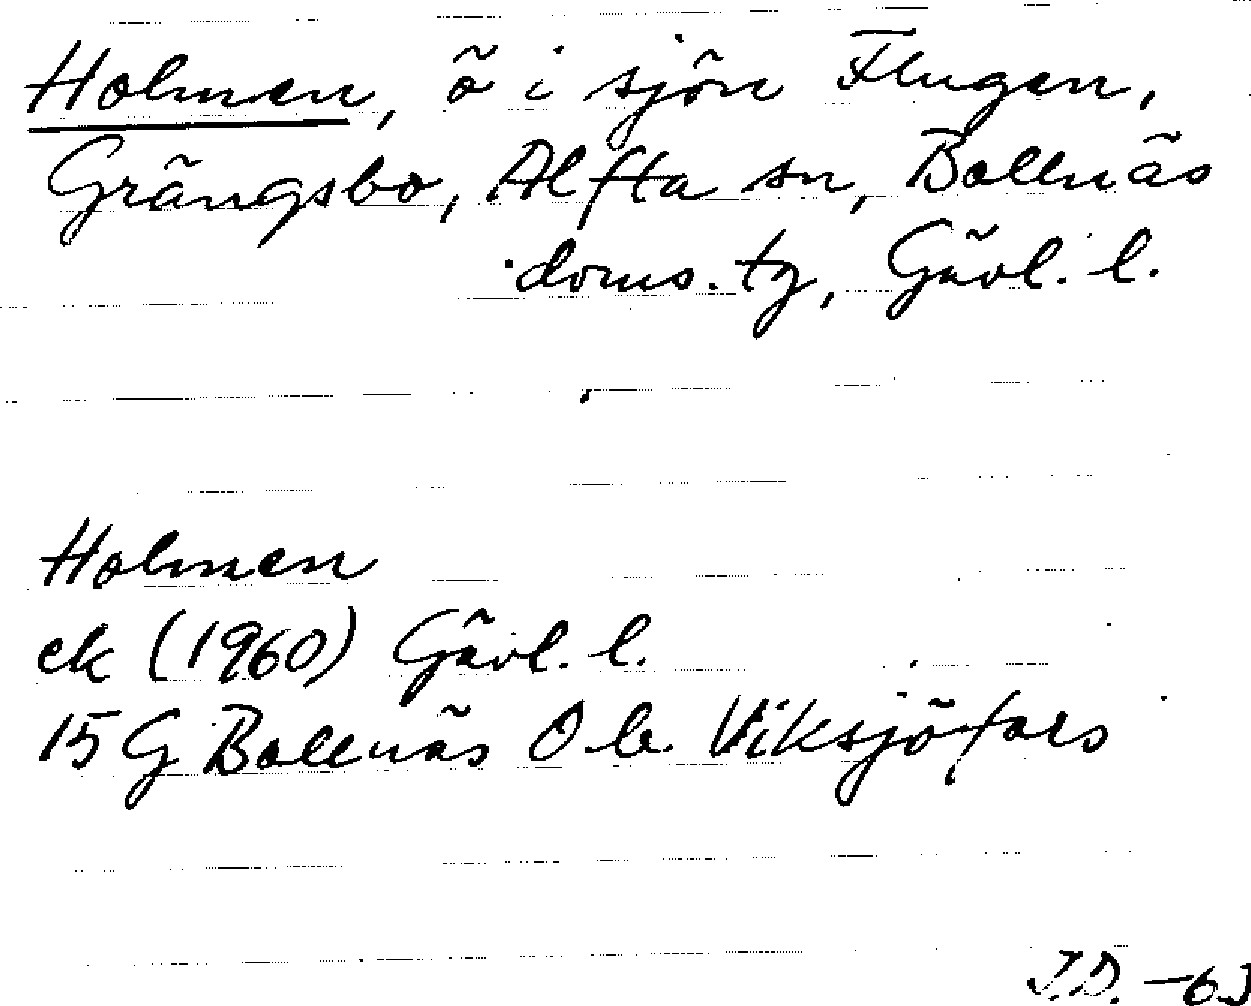 Holmen, ö i sjön Flugen,
Grängsbo, Alfta sn, Bollnäs
doms. tg, Gävl. l.
Holmen
ek (1960) Gävl. l.
15 G Bollnäs Ob Viksjöfors
J.D. -63